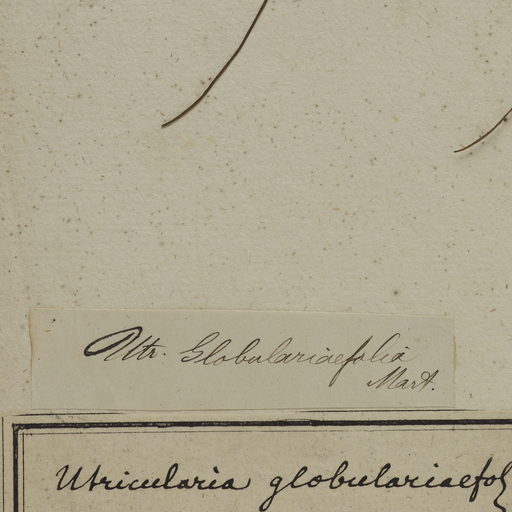 Utr. Globulariaefolia
Mart.
Utricularia globulariaefol